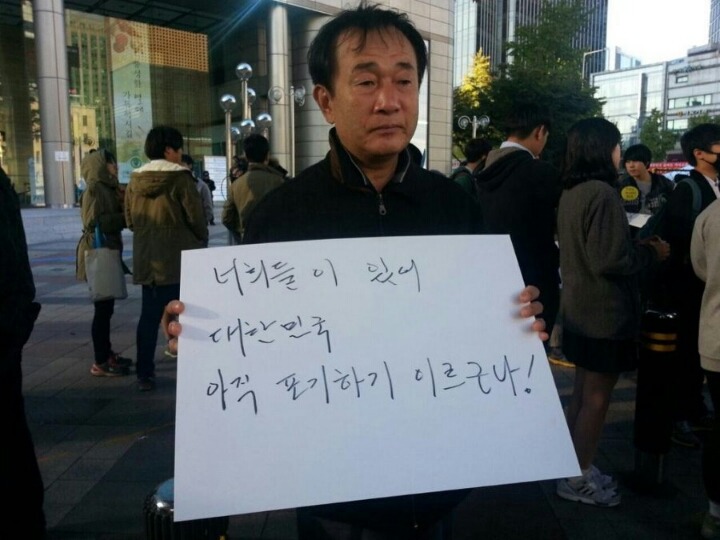 너희들이 있어
대한민국
아직 포기하기 이르구나!